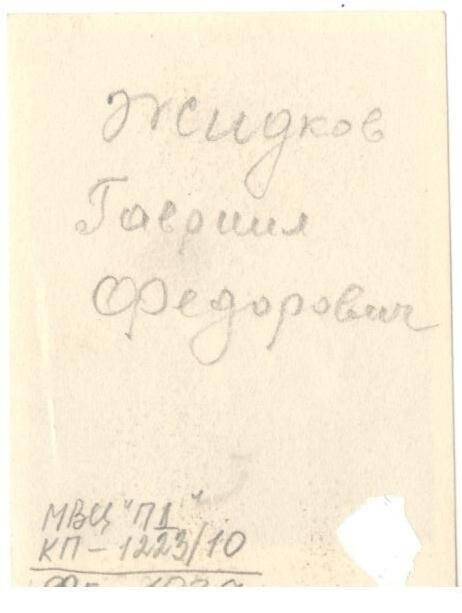 Жидков
Гавриил
Федорович
МВЦ "П1"
КП-1223/10